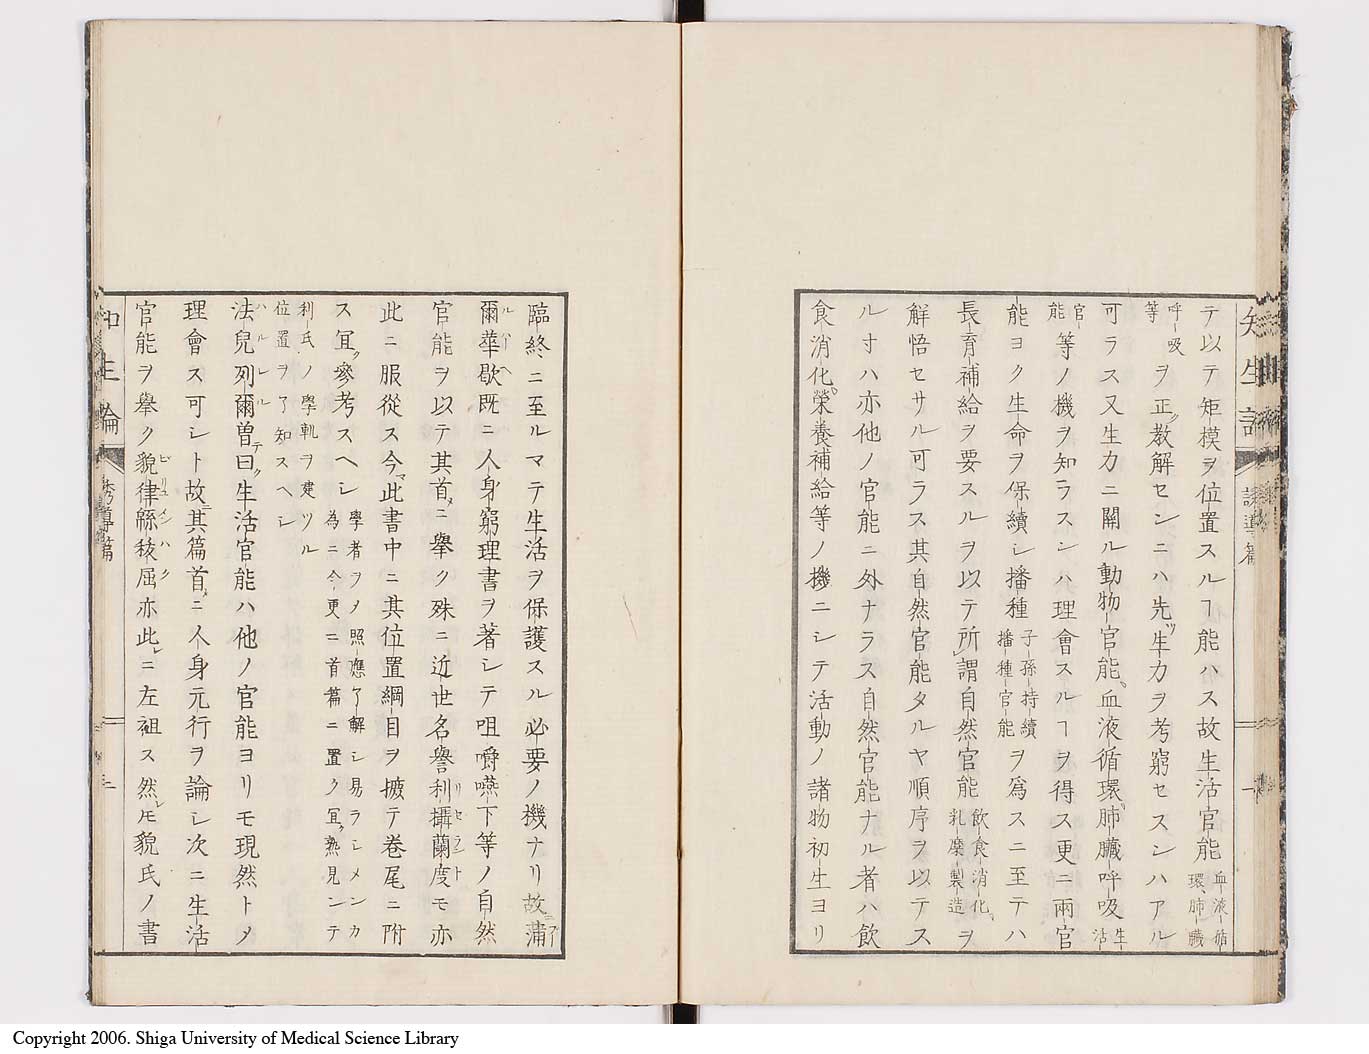 テ以テ矩模ヲ位置スルヿ能ハス故生活官能血液循環肺臓
呼吸等ヲ正教解センニハ先生力ヲ考窮セスンハアル
可ラス又生力ニ關ル動物官能血液循環肺臓呼吸生活
官能等ノ機ヲ知ラスンハ理會スルヿヲ得ス更ニ兩官
能ヨク生命ヲ保續シ播種子孫持續播種官能ヲ爲スニ至テハ
長育補給ヲ要スルヲ以テ所謂自然官能飲食消化乳糜製造ヲ
解悟セサル可ラス其自然官能タルヤ順序ヲ以テス
ル寸ハ亦他ノ官能ニ外ナラス自然官能ナル者ハ飲
食消化榮養補給等ノ機ニシテ活動ノ諸物初生ヨリ
臨終ニ至ルマテ生活ヲ保護スル必要ノ機ナリ故蒲
爾華歇既ニ人身窮理書ヲ著シテ咀嚼嚥下等ノ自然
官能ヲ以テ其首ニ擧ク殊ニ近世名譽利攝蘭度モ亦
此ニ服從ス今此書中ニ其位置綱目ヲ摭テ巻尾ニ附
ス冝參考スヘシ學者ヲメ照應了解シ易ラシメンカ為ニ今更ニ首篇ニ置ク冝熟見シテ
利氏ノ學軌ヲ建ツル位置ヲ了知スヘシ
法兒列爾曽曰生活官能ハ他ノ官能ヨリモ現然トメ
理會ス可シト故其篇首ニ人身元行ヲ論シ次ニ生活
官能ヲ擧ク貌律緜抜屈亦此ニ左袒ス然ルニ貌氏ノ書
知生論
誘導篇
Copyright 2006. Shiga University of Medical Science Library